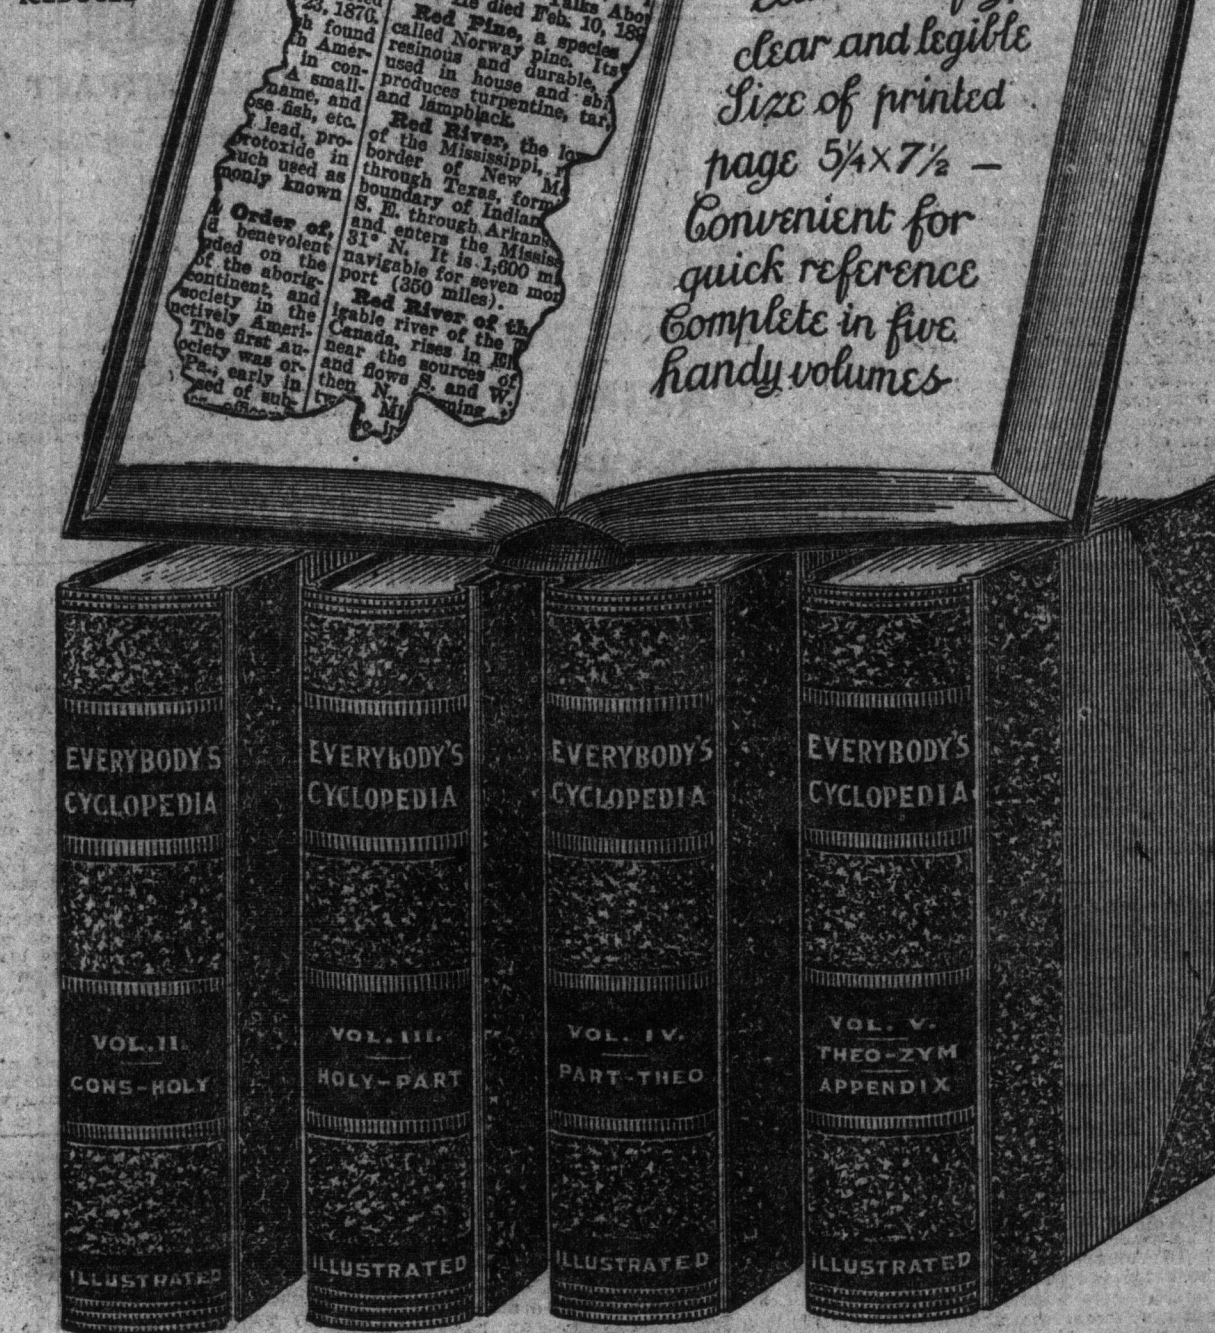 23, 1876.
found
Amer-
in con-
A small-
name, and
fish, etc.
lead, pro-
protoxide in
much used as
monly known
Order of,
benevolent
on the
of the aborig-
continent, and
society in the
Ameri-
The first au-
society was or-
Pa., early in
sed of sub-
died Feb. 10, 189
Red Pine, a species
called Norway pine. Its
resinous and durable,
used in house and shi
produces turpentine, tar,
and lampblack.
Red River, the lo
of the Mississippi,
border of New M
through Texas, form
boundary of Indian
S. E. through Arkans
and enters the Missis
31° N. It is 1,600 m
navigable for seven mon
port (350 miles).
Red River of th
igable river of the
Canada, rises in El
near the sources of
and flows S. and W.
then N.,
clear and legible
Size of printed
page 5¼ x 7½ –
Convenient for
quick reference
Complete in five
handy volumes
EVERYBODY'S
CYCLOPEDIA
VOL. II.
CONS-HOLY
ILLUSTRATED
EVERYBODY'S
CYCLOPEDIA
VOL. III.
HOLY-PART
ILLUSTRATED
EVERYBODY'S
CYCLOPEDIA
VOL. IV.
PART-THEO
ILLUSTRATED
EVERYBODY'S
CYCLOPEDIA
VOL. V.
THEO-ZYM
APPENDIX
ILLUSTRATED